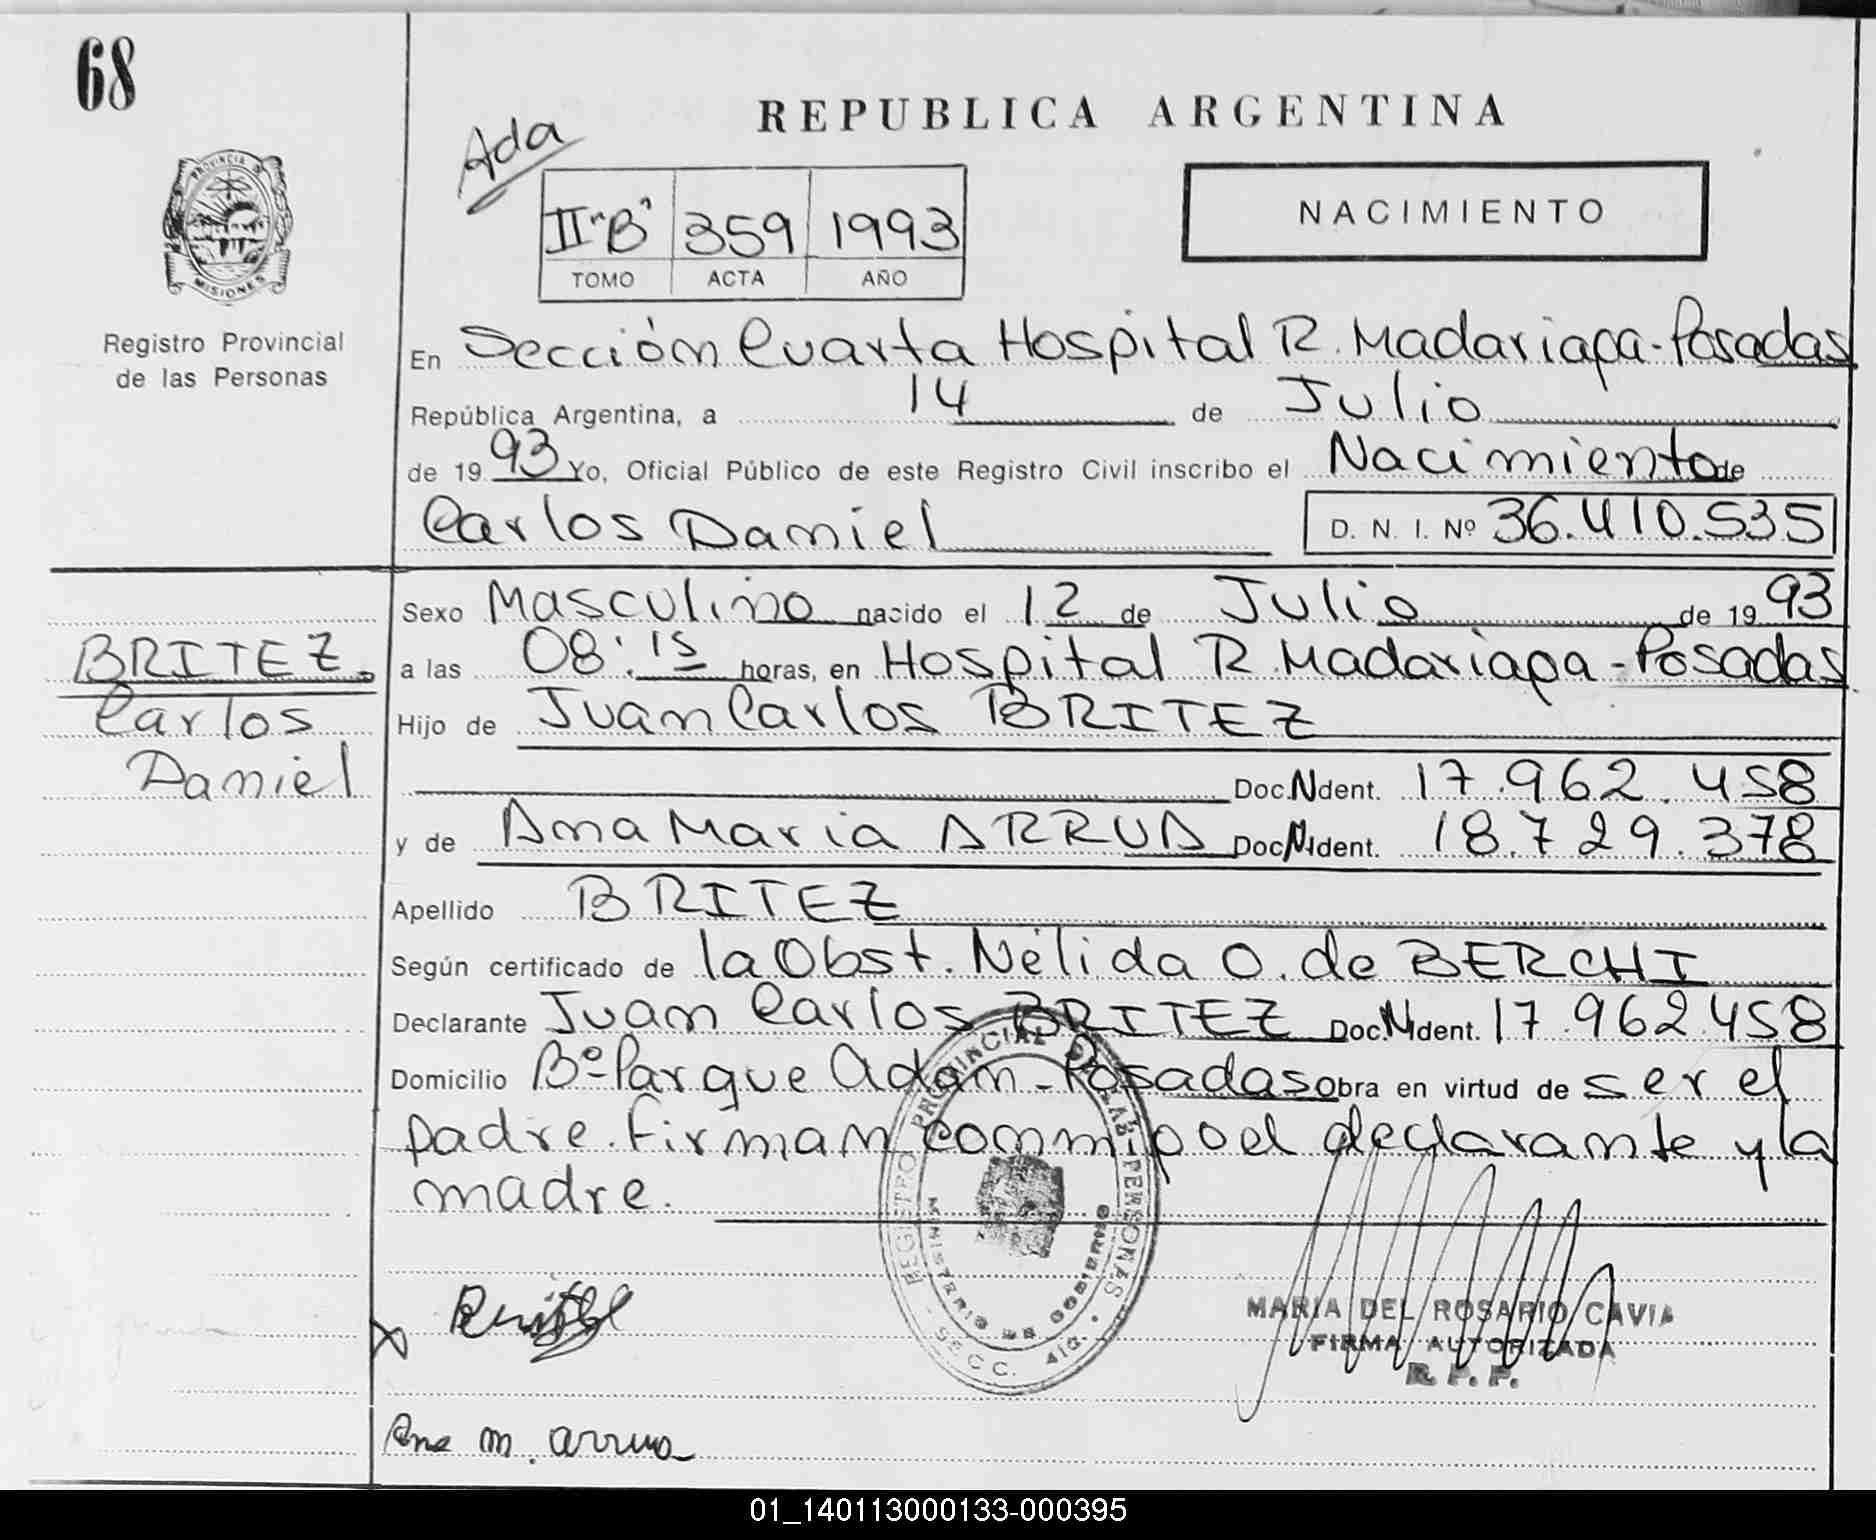 68
REPUBLICA ARGENTINA
Ada
PROVINCIA D
MISIONES
II "B" 359 1993
TOMO ACTA AÑO
NACIMIENTO
Registro Provincial
de las Personas
En Sección Cuarta Hospital R. Madariaga - Posadas
República Argentina, a 14 de Julio
de 19 93 Yo, Oficial Público de este Registro Civil inscribo el Nacimiento de
Carlos Daniel D. N. I. Nº 36.410.535
BRITEZ
Carlos
Daniel
Sexo Masculino nacido el 12 de Julio de 19 93
a las 08:15 horas, en Hospital R. Madariaga - Posadas
Hijo de Juan Carlos BRITEZ
Doc. N Ident. 17.962.458
y de Ana Maria ARRUA Doc. N Ident. 18.729.378
Apellido BRITEZ
Según certificado de la Obst. Nélida O. de BERCHI
Declarante Juan Carlos BRITEZ Doc. N Ident. 17.962.458
Domicilio Bº Parque Adam - Posadas obra en virtud de ser el
padre. Firman conmigo el declarante y la
madre.
REGISTRO PROVINCIAL DE LAS PERSONAS
MINISTERIO DE GOBIERNO
SECC. 4ta.
MARIA DEL ROSARIO CAVIA
FIRMA AUTORIZADA
R. P. P.
Ana M. Arrua
01_140113000133-000395